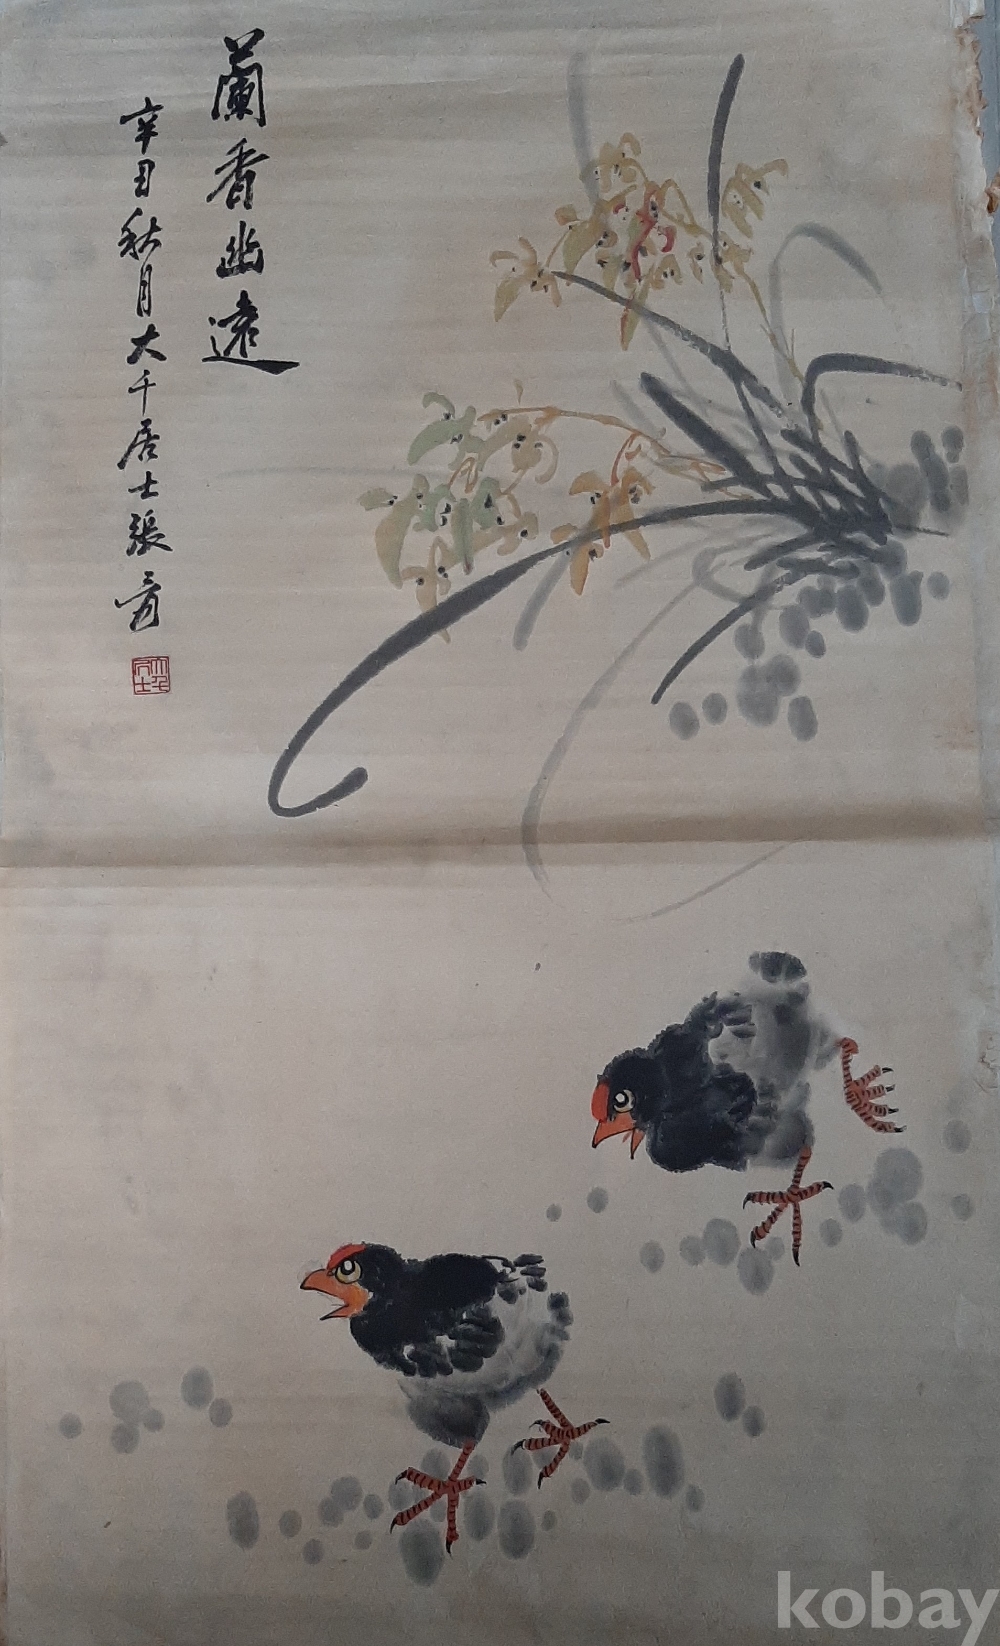 蘭香幽遠
辛丑秋月大千居士張爰
大千居士
kobay